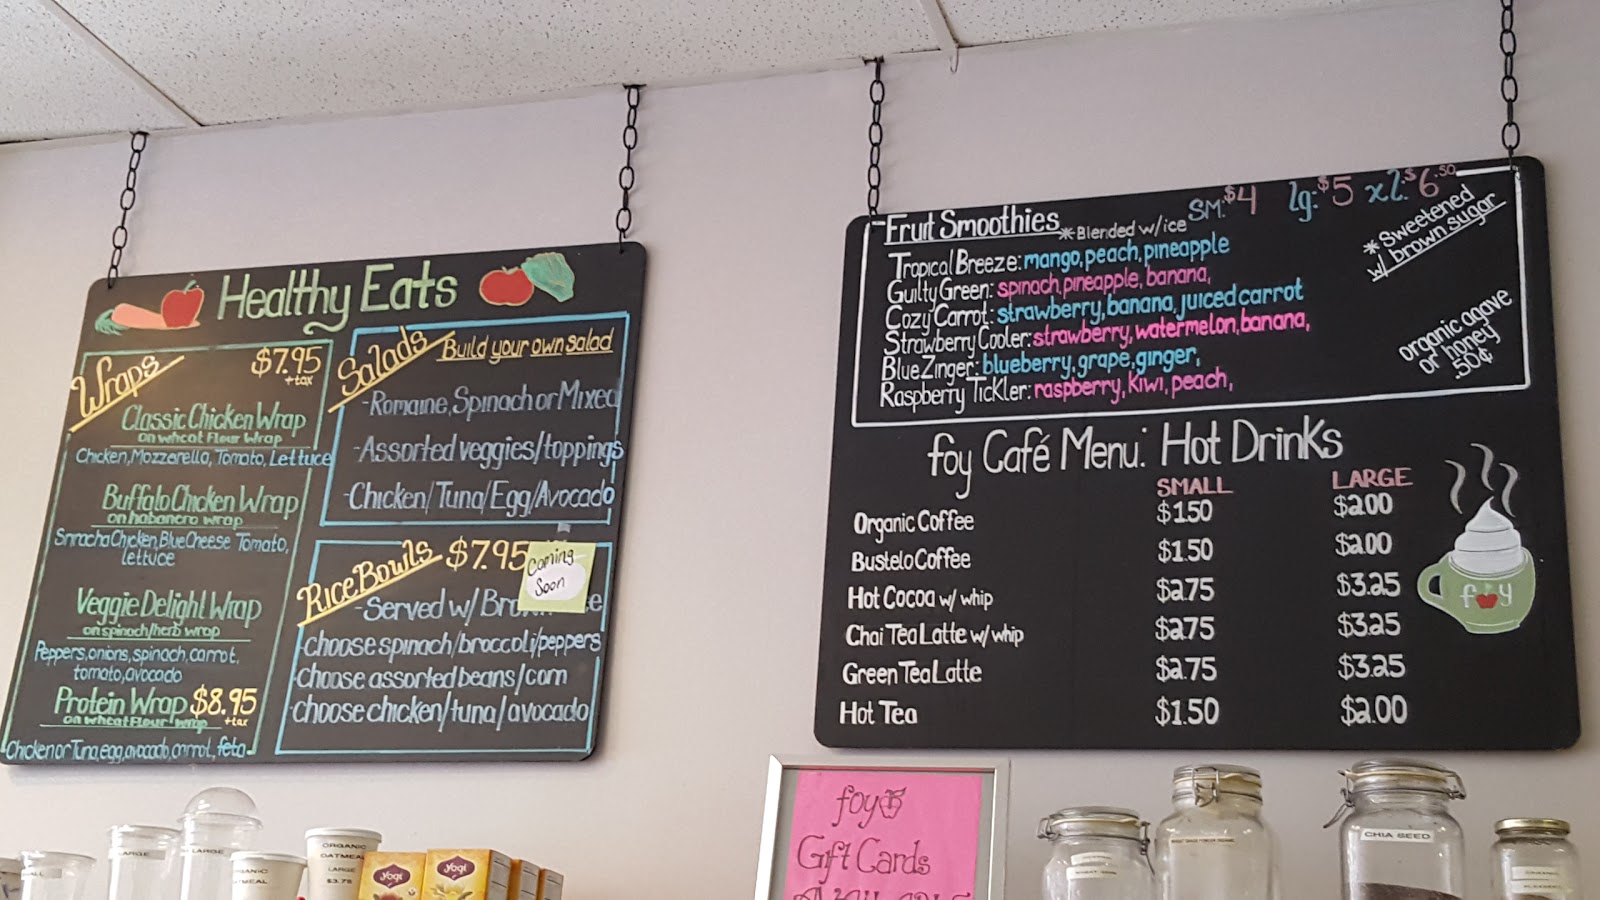 Healthy Eats
Wraps $7.95
+tax
Classic Chicken Wrap
on wheat flour wrap
Chicken, Mozzerella, Tomato, Lettuce
Buffalo Chicken Wrap
on habanero wrap
Sriracha Chicken, Blue Cheese Tomato,
lettuce
Veggie Delight Wrap
on spinach/herb wrap
Peppers, onions, spinach, carrot,
tomato, avocado
Protein Wrap $8.95
+tax
on wheat flour wrap
Chicken or Tuna, egg, avocado, carrot, feta
Salads Build your own salad
-Romaine, Spinach or Mixed
-Assorted veggies/toppings
-Chicken/Tuna/Egg/Avocado
Rice Bowls $7.95
Coming
Soon
-Served w/ Br e
-Choose spinach/broccoli/peppers
-choose assorted beans/corn
-choose chicken/tuna/avocado
Fruit Smoothies *Blended w/ice SM: $4 lg: $5 xl: $6.50
Tropical Breeze: mango, peach, pineapple
Guilty Green: spinach, pineapple, banana,
Cozy Carrot: strawberry, banana, juiced carrot
Strawberry Cooler: strawberry, watermelon, banana,
Blue Zinger: blueberry, grape, ginger,
Raspberry Tickler: raspberry, kiwi, peach,
*Sweetened
w/ brown sugar
organic agave
or honey
.50¢
foy Café Menu: Hot Drinks
SMALL LARGE
Organic Coffee $1.50 $2.00
Bustelo Coffee $1.50 $2.00
Hot Cocoa w/ whip $2.75 $3.25
Chai Tea Latte w/ whip $2.75 $3.25
Green Tea Latte $2.75 $3.25
Hot Tea $1.50 $2.00
foy
foy
Gift Cards
LARGE
LARGE
ORGANIC
OATMEAL
LARGE
$3.75
OATMEAL
Yogi
Yogi
CHIA SEED